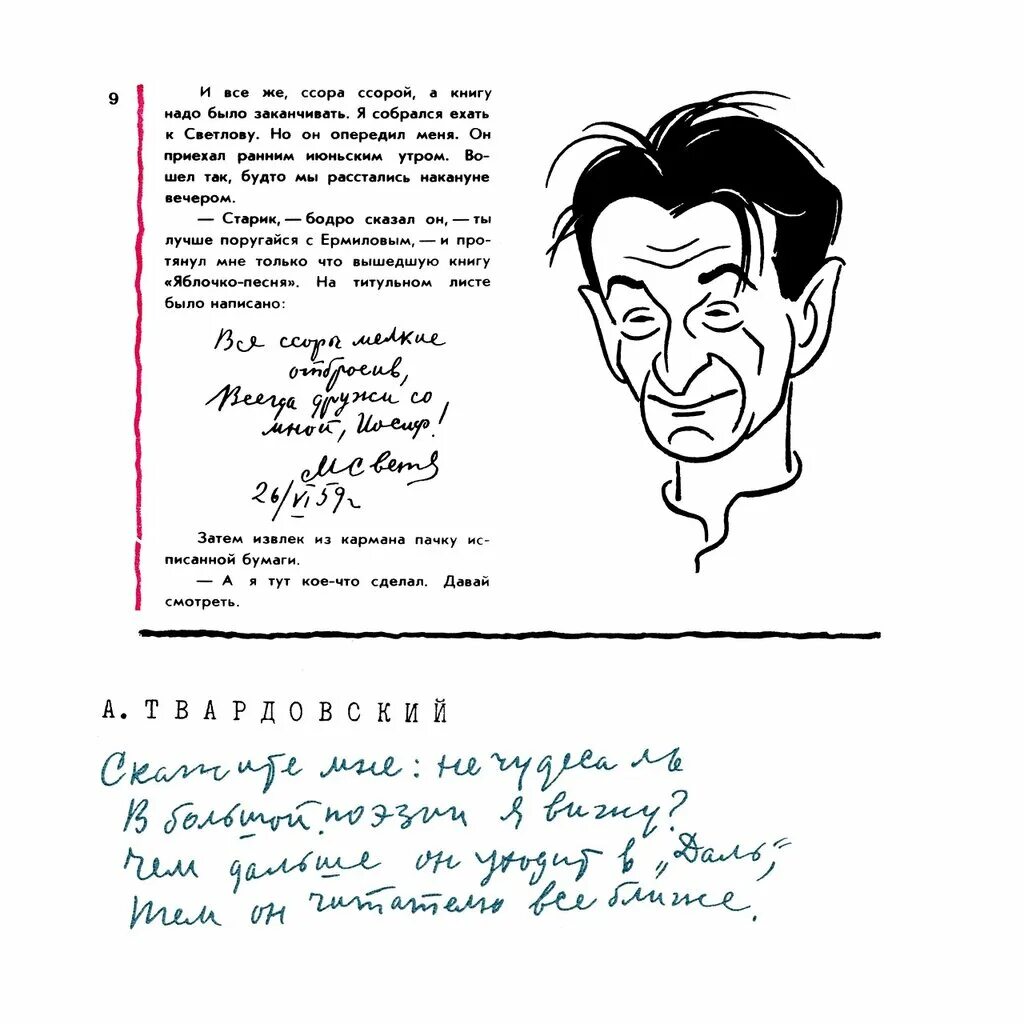 9
И все же, ссора ссорой, а книгу
надо было заканчивать. Я собрался ехать
к Светлову. Но он опередил меня. Он
приехал ранним июньским утром. Во-
шел так, будто мы расстались накануне
вечером.
— Старик, — бодро сказал он, — ты
лучше поругайся с Ермиловым, — и про-
тянул мне только что вышедшую книгу
«Яблочко-песня». На титульном листе
было написано:
Все ссоры мелкие
отбросив,
Всегда дружи со
мной, Иосиф!
М Светл
26/VI 59 г
Затем извлек из кармана пачку ис-
писанной бумаги.
— А я тут кое-что сделал. Давай
смотреть.
А. ТВАРДОВСКИЙ
Скажите мне: не чудеса ль
В большой поэзии я вижу?
Чем дальше он уходит в „Даль",
Тем он читателю все ближе.